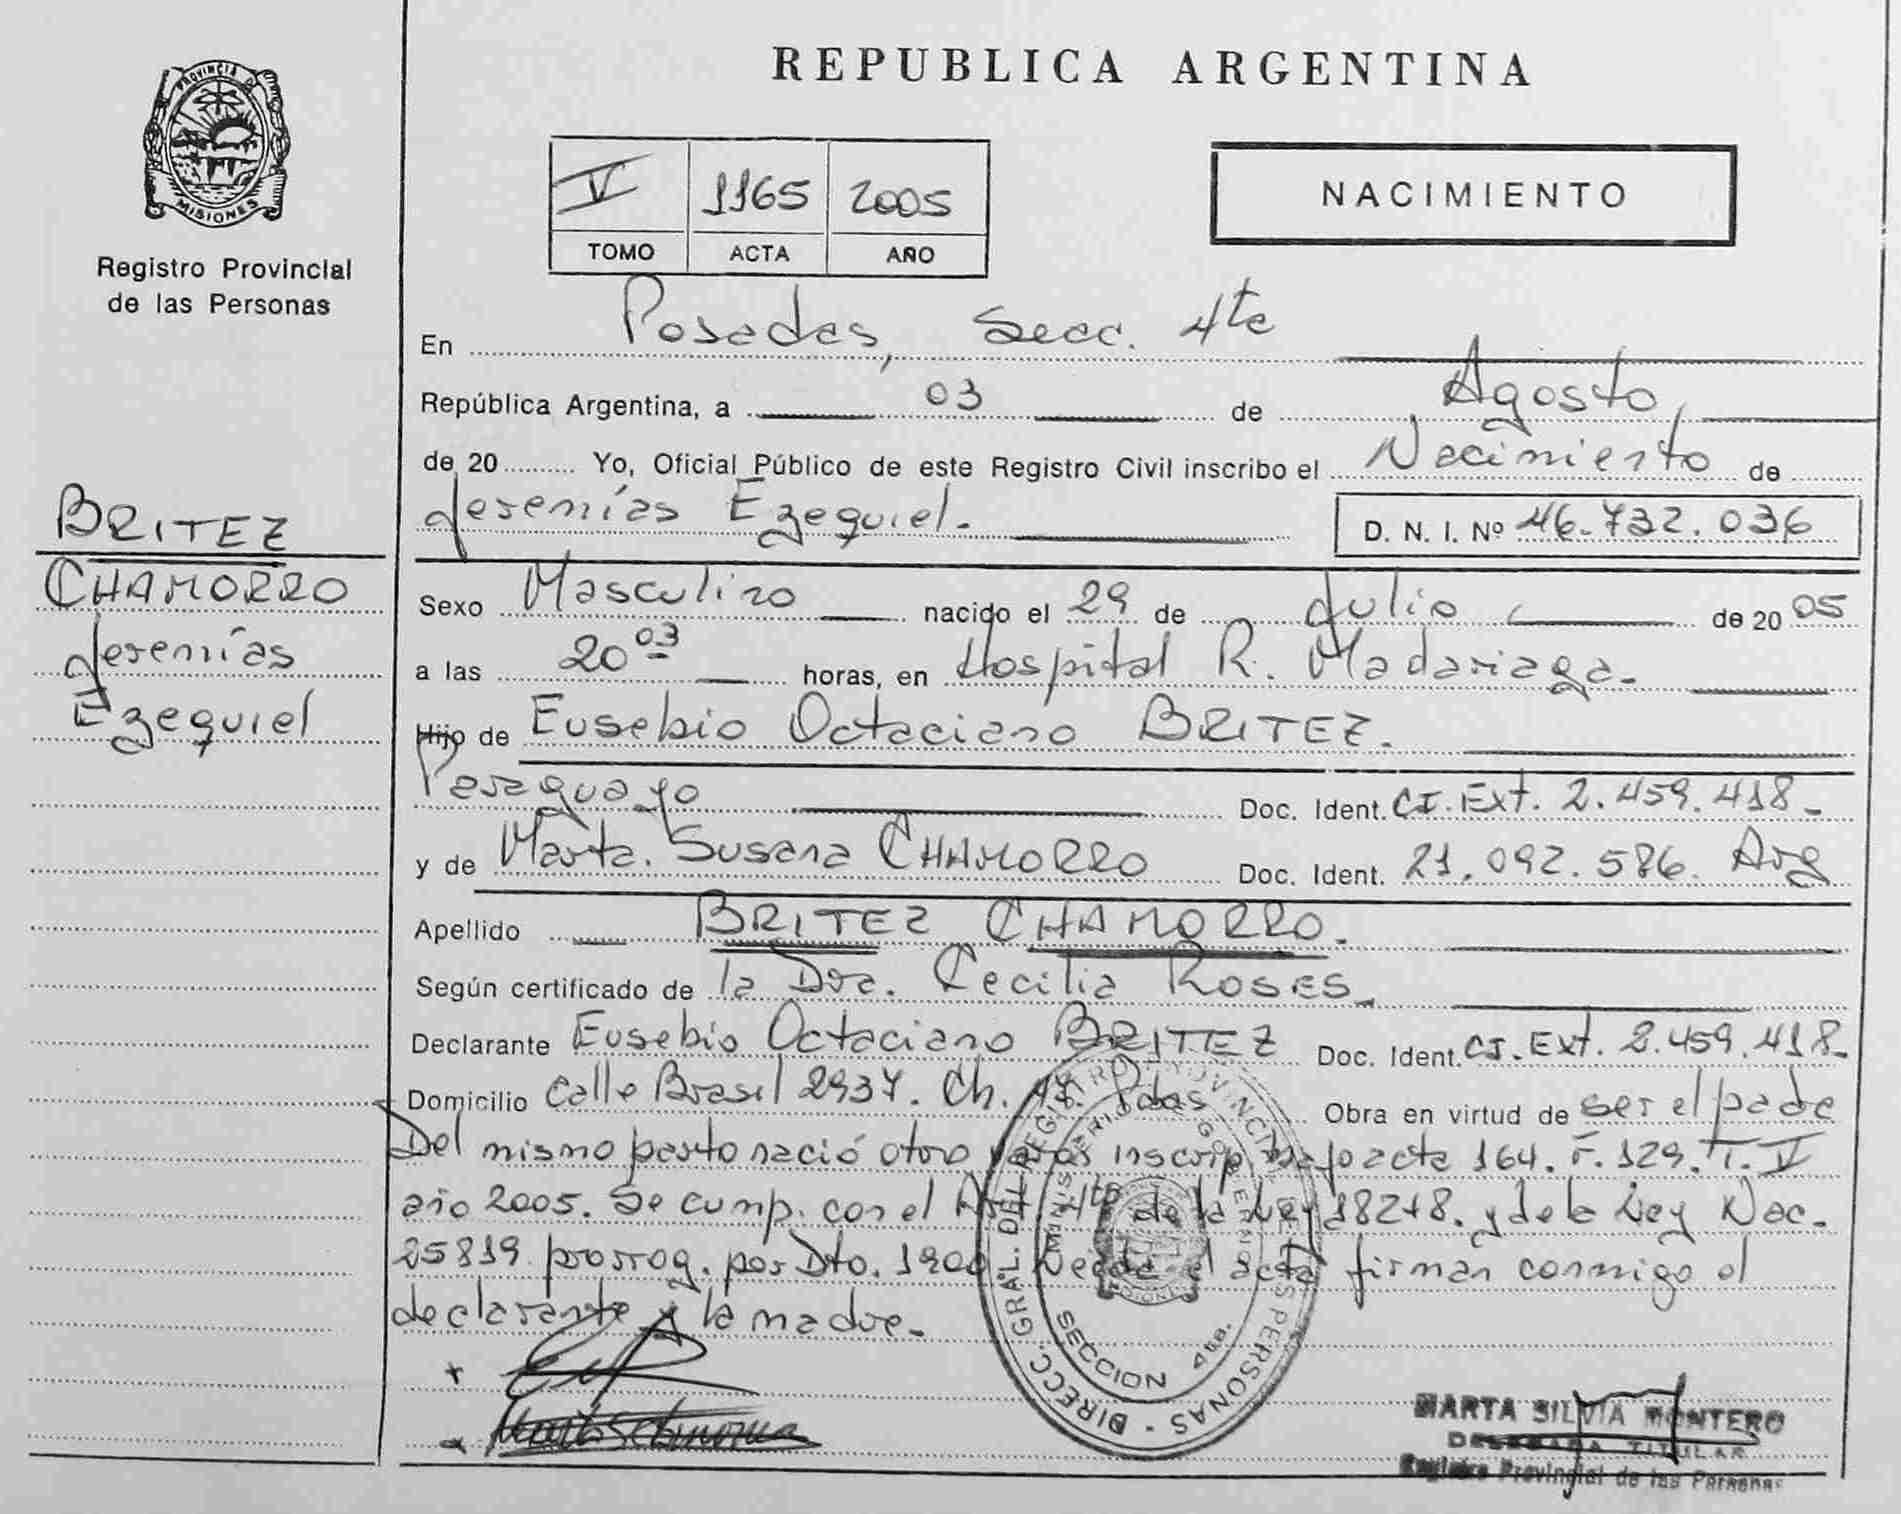 PROVINCIA DE
MISIONES
Registro Provincial
de las Personas
BRITEZ
CHAMORRO
Jeremías
Ezequiel
REPUBLICA ARGENTINA
V 1165 2005
TOMO ACTA AÑO
NACIMIENTO
En Posadas, Secc. 4ta
República Argentina, a 03 de Agosto,
de 20 Yo, Oficial Público de este Registro Civil inscribo el Nacimiento de
Jeremías Ezequiel.
D. N. I. Nº 46.732.036
Sexo Masculino nacido el 29 de Julio, de 20 05
a las 20 03 horas, en Hospital R. Madariaga.
Hijo de Eusebio Octaciano BRITEZ.
Paraguayo Doc. Ident. CI. Ext. 2.459.418-
y de Marta. Susana CHAMORRO Doc. Ident. 21.092.586. Arg
Apellido BRITEZ CHAMORRO.
Según certificado de la Dra. Cecilia ROSES
Declarante Eusebio Octaciano BRITEZ Doc. Ident. CI. Ext. 2.459.418-
Domicilio Calle Brasil 2937. Ch. Pdas Obra en virtud de ser el padre
Del mismo parto nació otro inscrip bajo acta 164. F. 129. T. V
año 2005. Se cump. con el Art. 4to de la Ley 18248. y de la Ley Nac.
25819. prorrog. por Dto. 190 el acta firman conmigo el
declarante y la madre-
DIRECC. GRAL. DEL REGISTRO PROVINCIAL DE LAS PERSONAS
MINISTERIO DE GOBIERNO
SECCION 4ta.
MARTA SILVIA MONTERO
DELEGADA TITULAR
Registro Provincial de las Personas